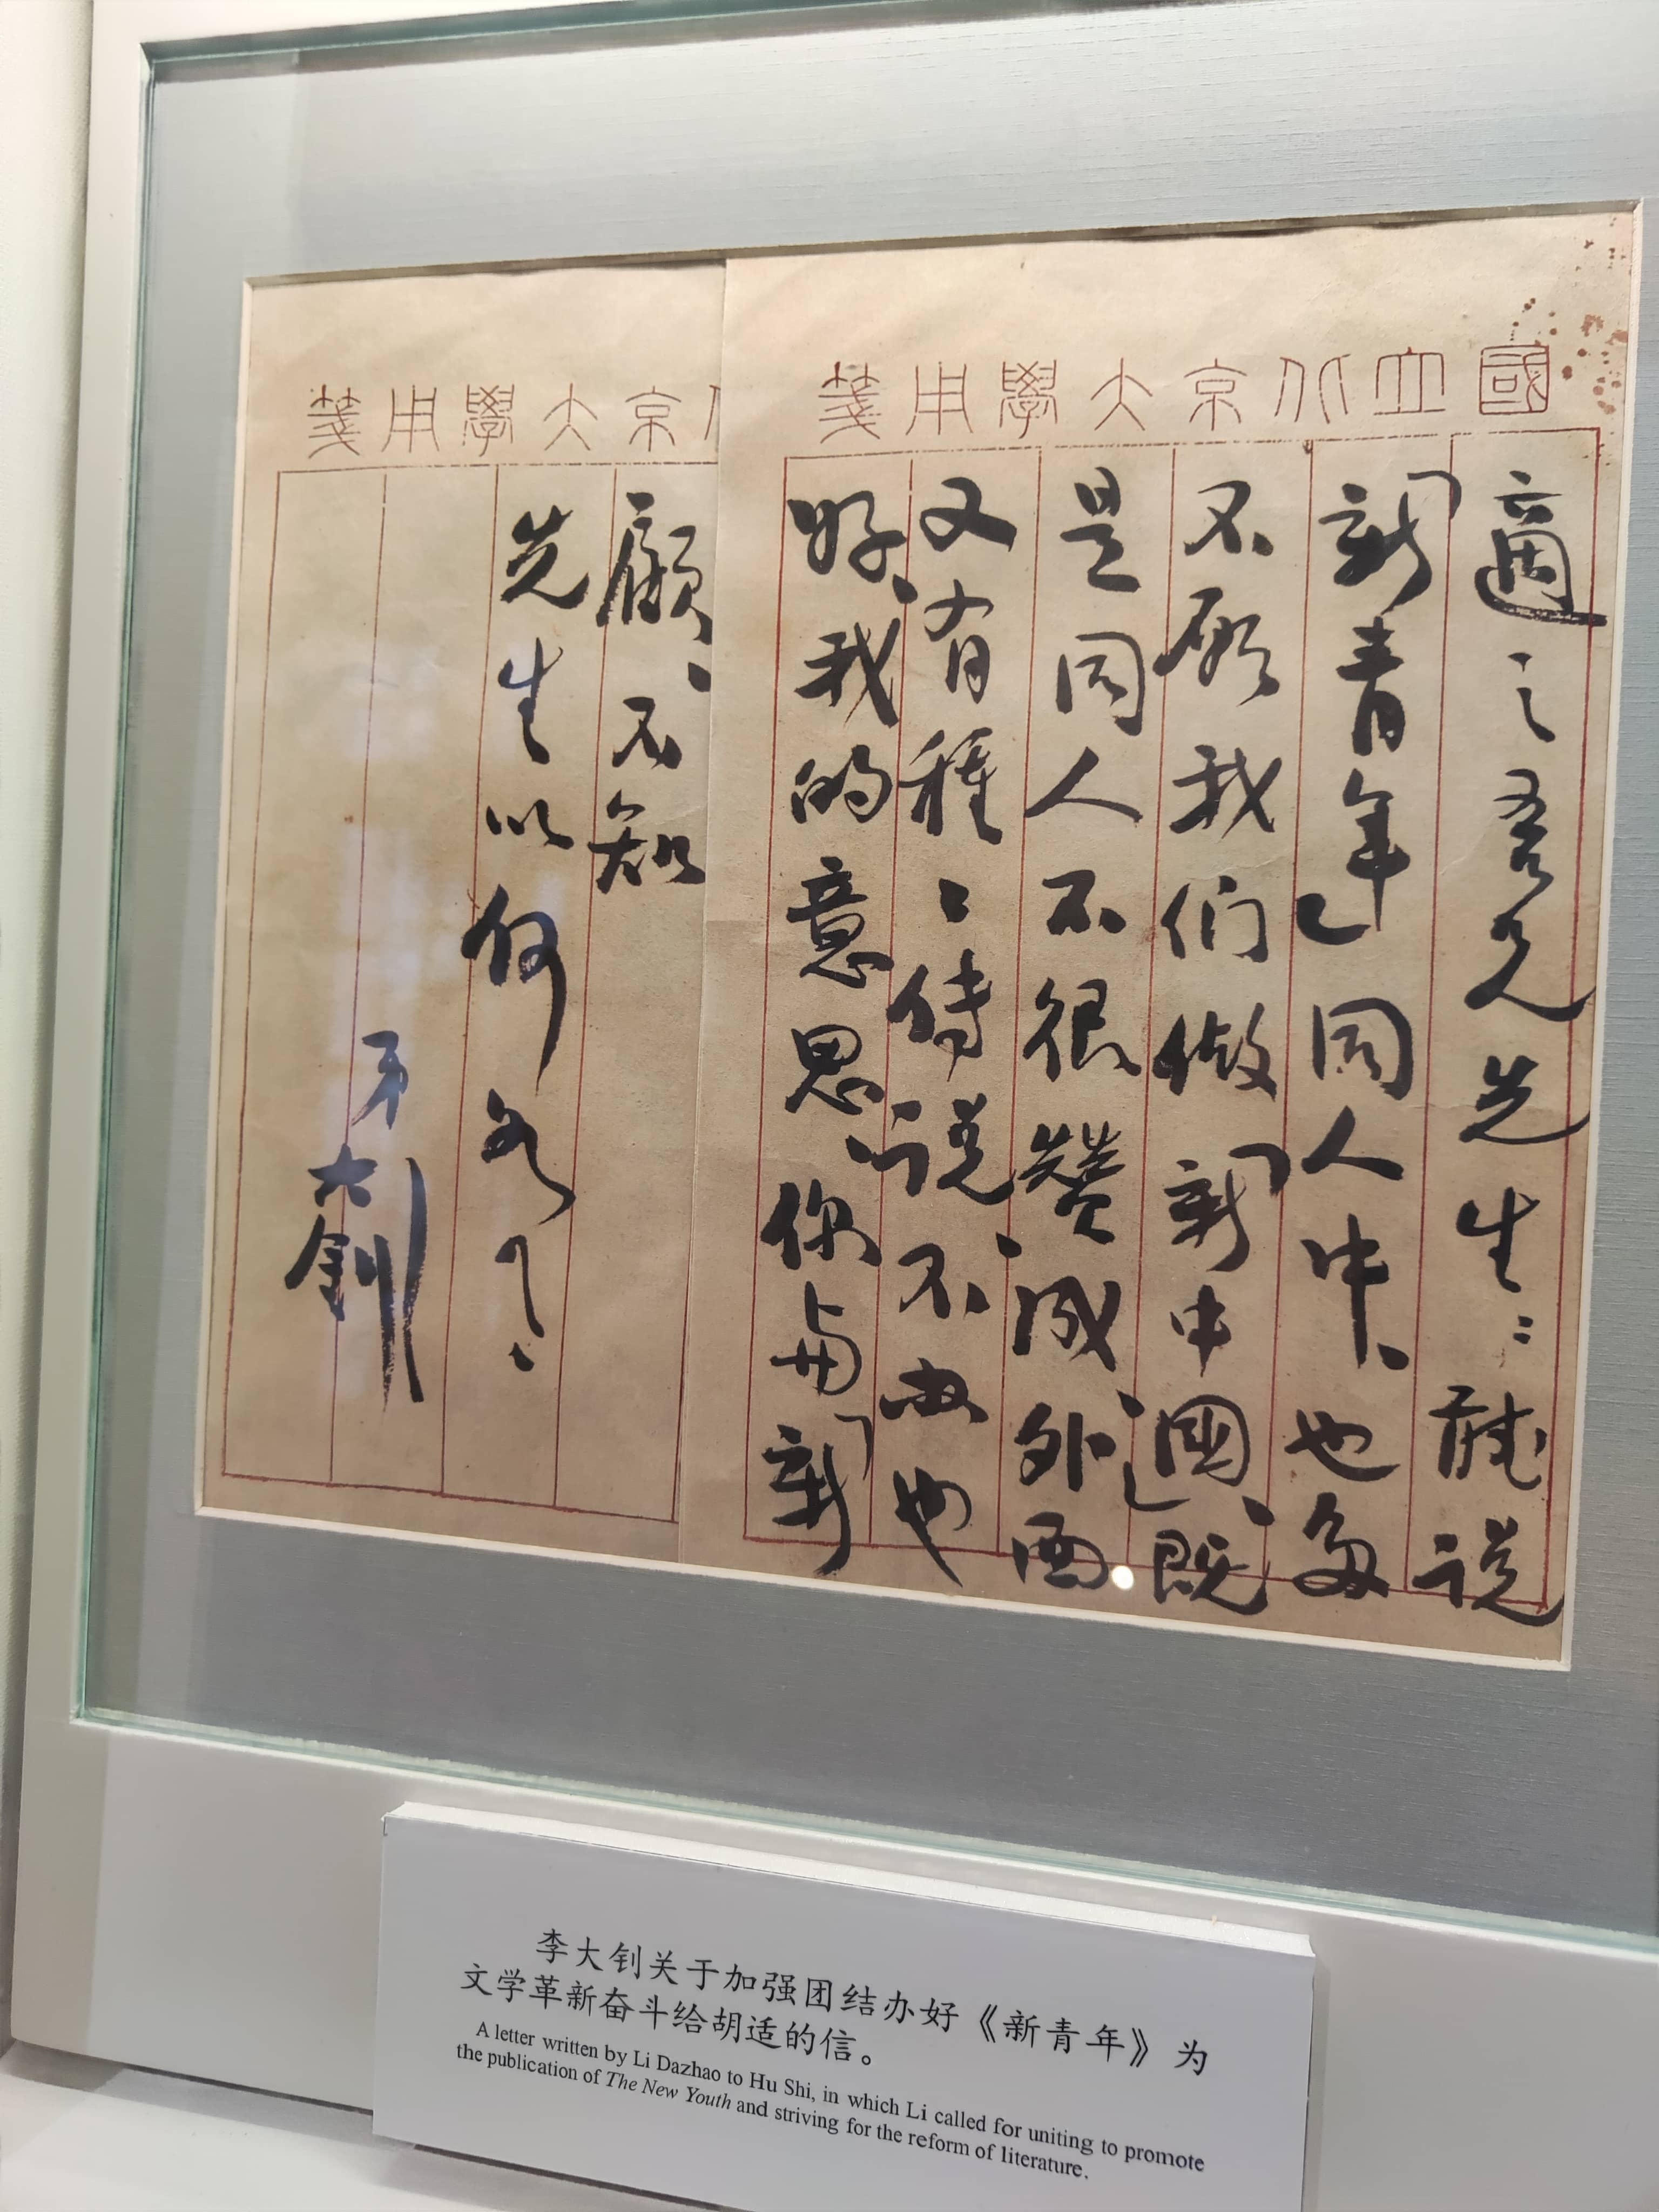 國立北京大學用箋
適之吾兄先生：聽説
「新青年」同人中、也多
不願我們做「新中國」、既
是同人不很贊成、外面
又有種〻傳説、不办也
好、我的意思、你與「新
京大學用箋
顧、不知
先生以何
弟
大釗
李大钊关于加强团结办好《新青年》为
文学革新奋斗给胡适的信。
A letter written by Li Dazhao to Hu Shi, in which Li called for uniting to promote
the publication of The New Youth and striving for the reform of literature.